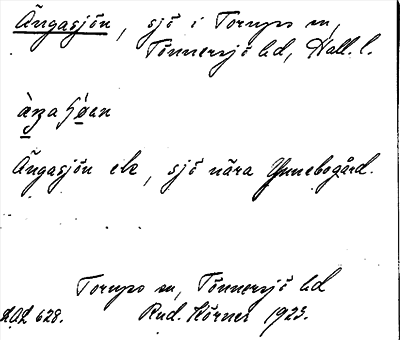 Ängasjön, sjö i Torups sn,
Tönnersjö hd, Hall. l.
Ängasjön ek, sjö nära Ynnebogård.
Torups sn, Tönnersjö hd
628. Rud. Körner 1923.